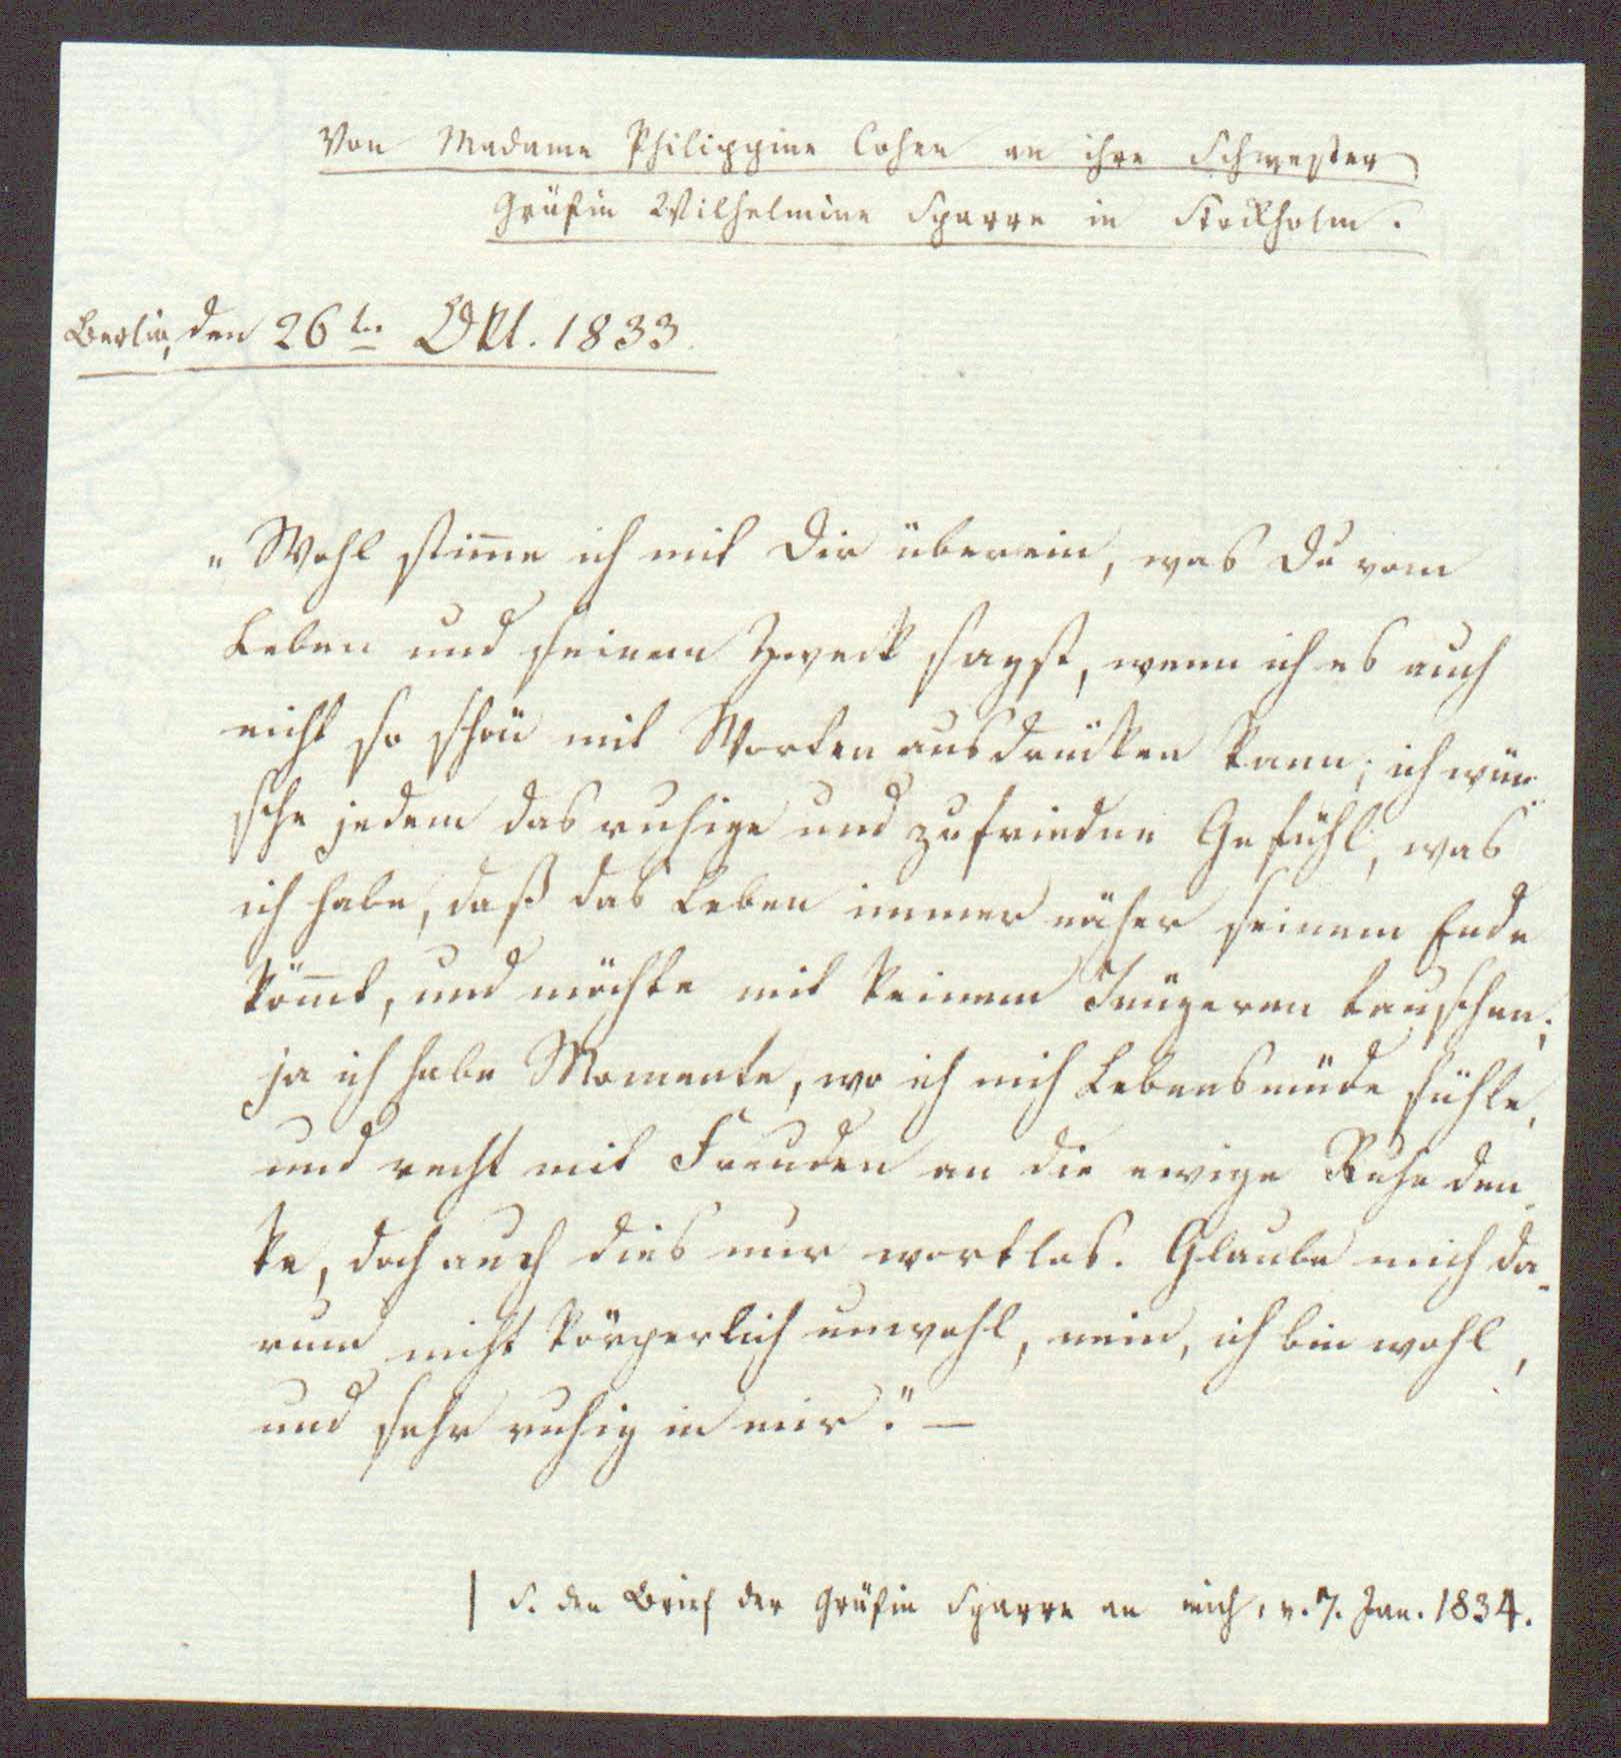 Von Madame Philippine Cohen an ihre Schwester
Gräfin Wilhelmine Sparre in Stockholm.
Berlin, den 26ten Okt. 1833.
„Wohl stim̄e ich mit Dir überein, was Du vom
Leben und seinem Zweck sagst, wenn ich es auch
nicht so schön mit Worten ausdrücken kann; ich wün-
sche jedem das ruhige und zufriedne Gefühl, was
ich habe, daß das Leben immer näher seinem Ende
köm̄t, und möchte mit keinem Jüngeren tauschen;
ja ich habe Momente, wo ich mich Lebensmüde fühle,
und recht mit Freuden an die ewige Ruhe den-
ke, doch auch dies nur wortlos. Glaube mich da-
rum nicht körperlich unwohl, nein, ich bin wohl,
und sehr ruhig in mir.“ —
| S. den Brief der Gräfin Sparre an mich, v. 7. Jan. 1834.